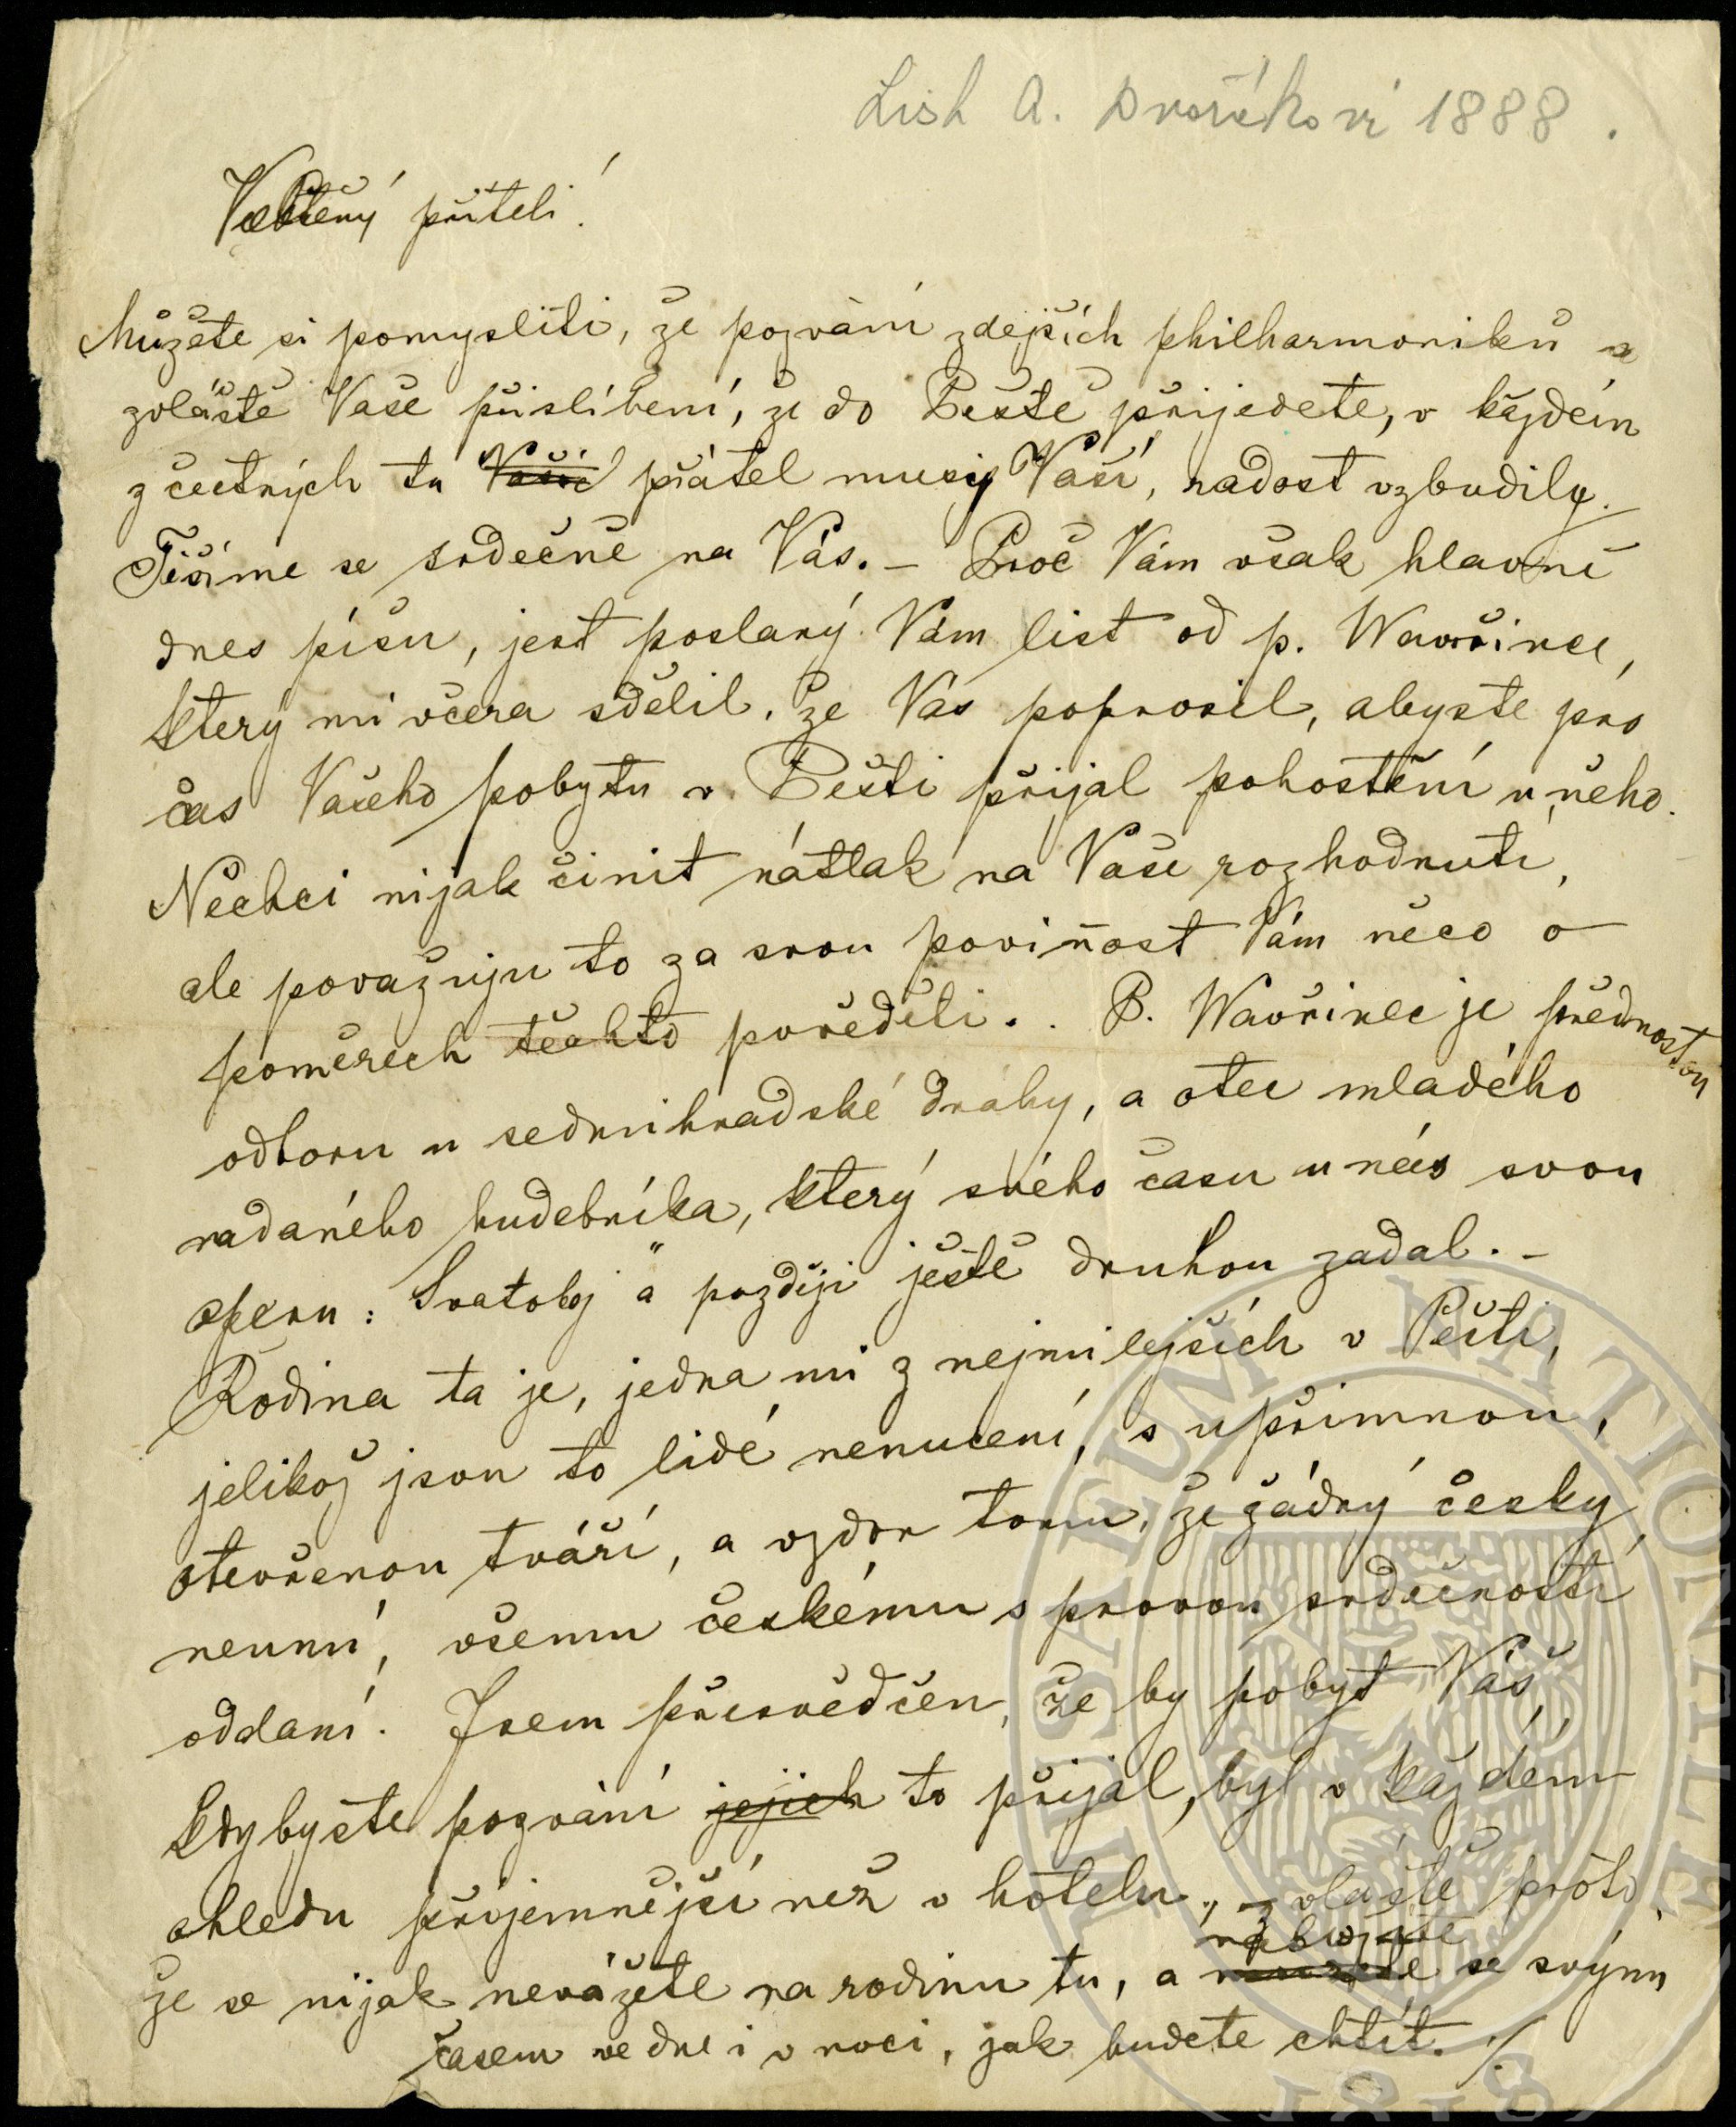 List A. Dvořákovi 1888.
Vectěný příteli!
Můžete si pomysliti, že pozvání zdejších philharmoniků a
zvláště Vaše přislíbení, že do Peště přijedete, v každém
z četných tu Vašic přátel musy Vaší, radost vzbudily.
Těšíme se srdečně na Vás. – Proč Vám však hlavně
dnes píšu, jest poslaný Vám list od p. Wavřince,
který mi včera sdělil, že Vás poprosil, abyste pro
čas Vašeho pobytu v Pešti přijal pohostění u něho.
Nechci nijak činit nátlak na Vaše rozhodnutí,
ale považuju to za svou povinost Vám něco o
poměrech těchto pověděti. . P. Wavřinec je přednostou
odboru u sedmihradské dráhy, a otec mladého
nadaného hudebníka, který svého času u nás svou
operu: Svatoboj" a později ještě druhou zadal. –
Rodina ta je, jedna mi z nejmilejších v Pešti,
jelikož jsou to lidé nenucení, s upřimnou,
otevřenou tváří, a vzdor tomu, že žádný česky
neumí, všemu českému s pravou srdečností
oddaní. Jsem přesvědčen, že by pobyt Váš,
kdybyste pozvání jejich to přijal, byl v každém
ohledu příjemnější než v hotelu, zvláště proto
že se nijak nevážete na rodinu tu, a se svým
časem ve dne i v noci, jak budete chtít. ./.
MUSAEUM NATIONALE
1818